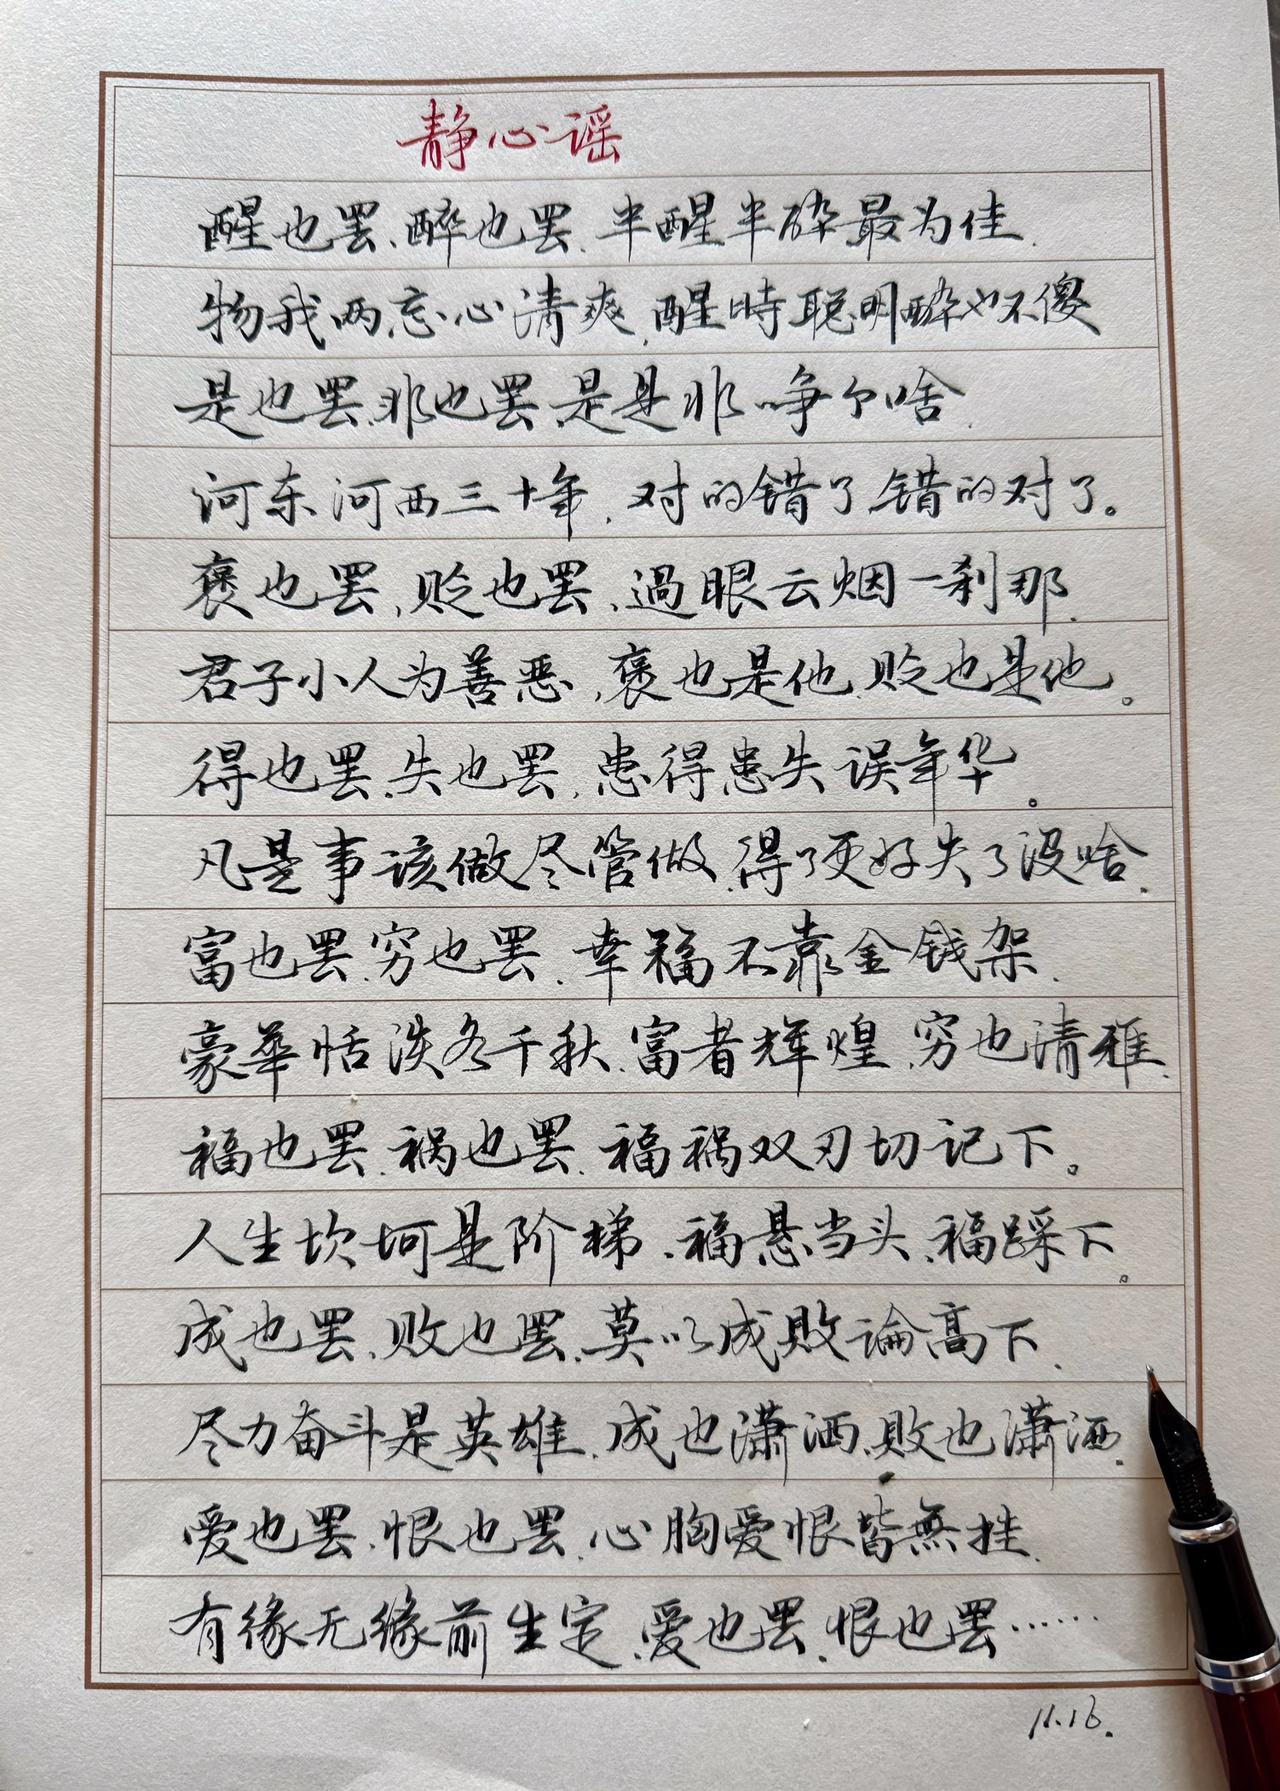 静心谣
醒也罢、醉也罢、半醒半醉最为佳.
物我两忘心清爽,醒時聪明醉也不傻
是也罢、非也罢、是是非非争个啥.
河东河西三十年,对的错了,错的对了。
褒也罢,贬也罢,過眼云烟一刹那.
君子小人为善恶,褒也是他,贬也是他。
得也罢、失也罢,患得患失误年华。
凡是事该做尽管做,得了更好失了没啥.
富也罢、穷也罢.幸福不靠金钱架.
豪華恬淡各千秋.富者辉煌,穷也清雅.
福也罢.祸也罢.福祸双刃切记下。
人生坎坷是阶梯.福悬当头、福踩下。
成也罢、败也罢.莫以成敗論高下.
尽力奋斗是英雄.成也潇洒、敗也潇洒.
爱也罢、恨也罢、心胸爱恨皆無挂.
有缘无缘前生定.爱也罢、恨也罢……
11.16.